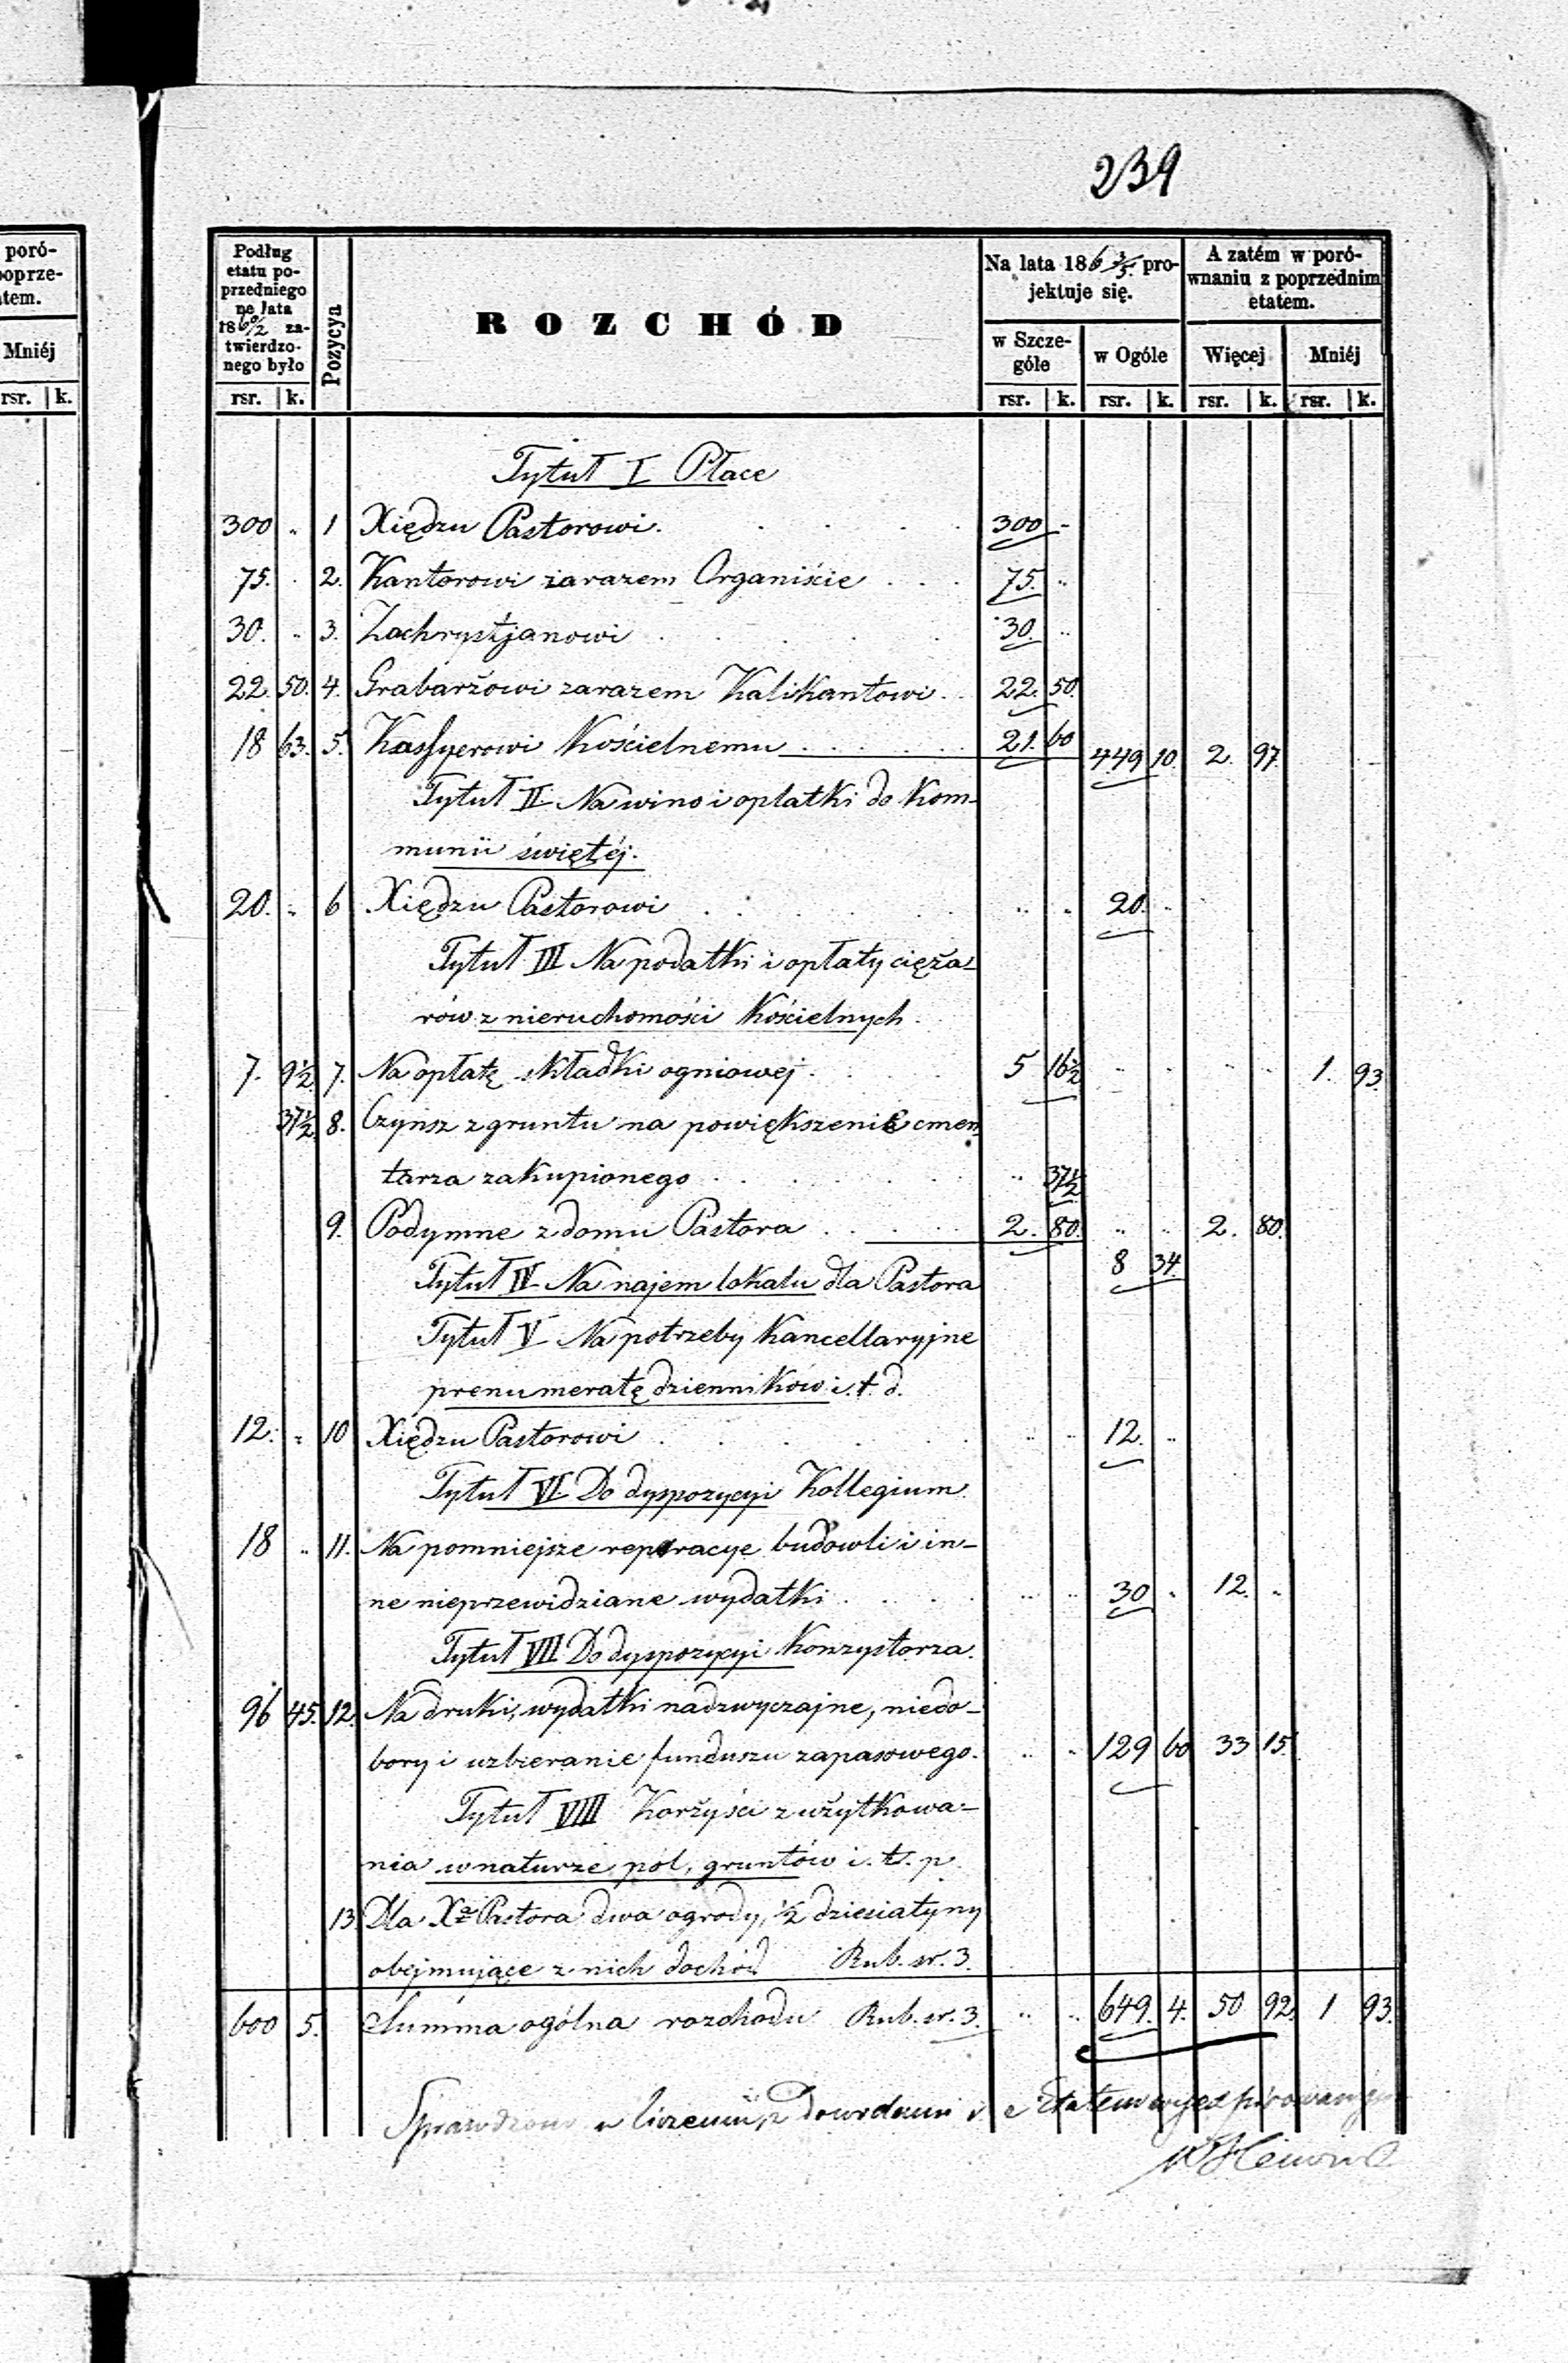 239
poró-
poprze-
atem.
Mniéj
rsr. k.
Podług etatu poprzedniego na lata 1860/2 zatwierdzonego było
Pozycya
ROZCHÓD
Na lata 186 3/5. projektuje się.
A zatém w porównaniu z poprzednim etatem.
w Szczególe
w Ogóle
Więcej
Mniéj
rsr. k. rsr. k. rsr. k. rsr. k. rsr. k.
Tytuł I Płace
300 " 1 Xiędzu Pastorowi. 300 "
75. " 2. Kantorowi zarazem Organiście 75. "
30. " 3. Zachrystjanowi 30. "
22. 50. 4. Grabarzowi zarazem Kalikantowi 22. 50.
18 63. 5. Kassyerowi Kościelnemu 21. 60 449 10. 2. 97.
Tytuł II Na wino i opłatki do Kom-
munii świętéj.
20. " 6 Xiędzu Pastorowi " " 20. "
Tytuł III Na podatki i opłaty cięża-
rów z nieruchomości Kościelnych.
7. 9½ 7. Na opłatę składki ogniowej. 5 16½ " " " " 1. 93.
37½ 8. Czynsz z gruntu na powiększenie cmen-
tarza zakupionego " 37½
9. Podymne z domu Pastora 2. 80. " " 2. 80.
8 34.
Tytuł IV Na najem lokalu dla Pastora
Tytuł V Na potrzeby Kancellaryjne
prenumeratę dzienników i. t. d.
12. " 10 Xiędzu Pastorowi " " 12. "
Tytuł VI Do dyspozycyi Kollegium
18 " 11. Na pomniejsze reperacye budowli i in-
ne nieprzewidziane wydatki " " 30 " 12. "
Tytuł VII Do dyspozycyi Konzystorza.
96 45. 12. Na druki, wydatki nadzwyczajne, niedo-
bory i uzbieranie funduszu zapasowego. " " 129 60 33 15.
Tytuł VIII Korzyści z użytkowa-
nia w naturze pól, gruntów i. t. p.
13 Dla Xa Pastora dwa ogrody, ½ dziesiatyny
obejmujące z nich dochód Rub. sr. 3.
600 5. Summa ogólna rozchodu Rub. sr. 3. " " 649. 4. 50 92. 1 93.
Sprawdzono w liczeniu, z dowodami i z Etatem